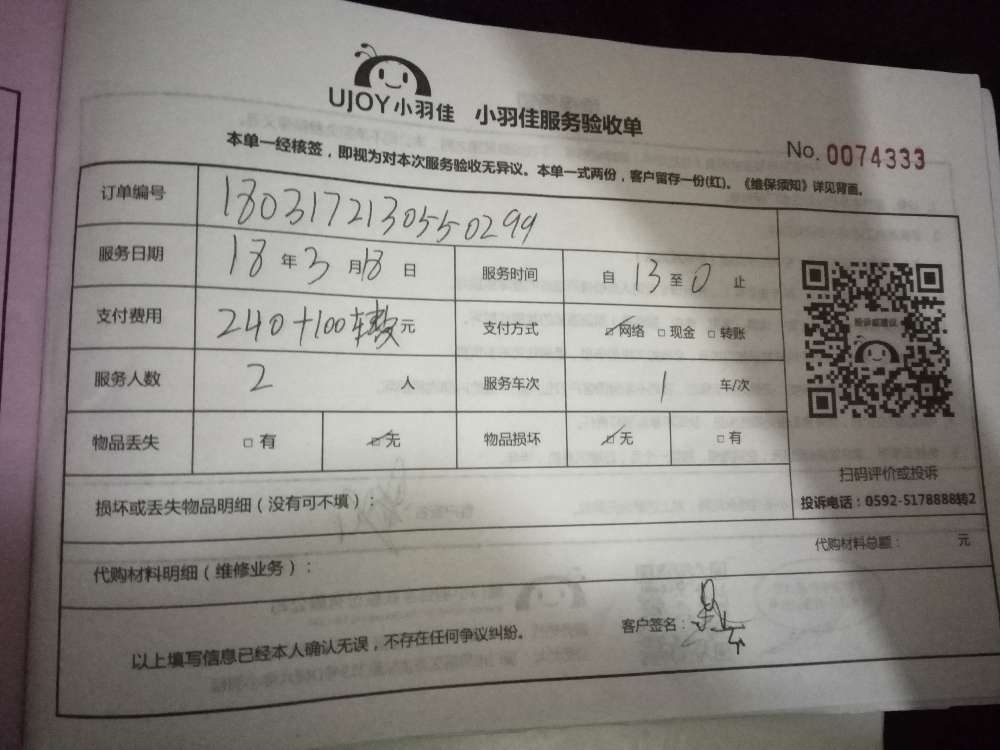 UJOY小羽佳 小羽佳服务验收单
No. 0074333
本单一经核签，即视为对本次服务验收无异议。本单一式两份，客户留存一份(红)。《维保须知》详见背面。
订单编号 180317213055-0299
服务日期 18 年 3 月 18 日 服务时间 自 13 至 0 止
支付费用 240+100车费 元 支付方式 □网络 □现金 □转账
服务人数 2 人 服务车次 1 车/次
物品丢失 □有 □无 物品损坏 □无 □有
投诉或建议
扫码评价或投诉
投诉电话：0592-5178888转2
损坏或丢失物品明细（没有可不填）：
代购材料总额： 元
代购材料明细（维修业务）：
客户签名：
以上填写信息已经本人确认无误，不存在任何争议纠纷。